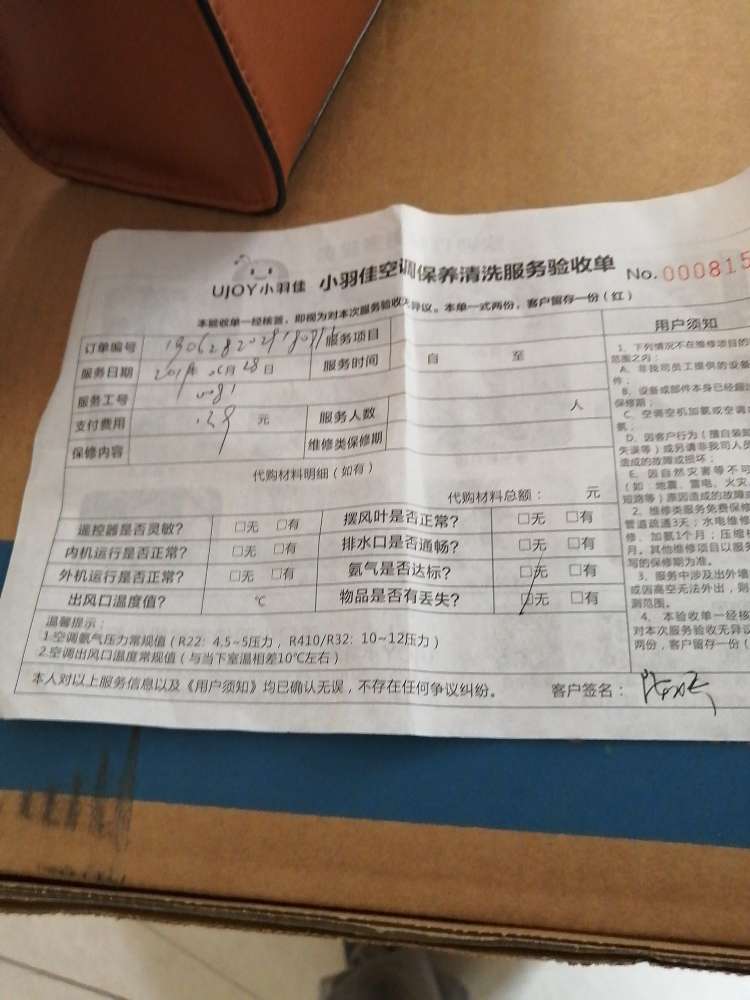 UJOY小羽佳 小羽佳空调保养清洗服务验收单 No.000815
本验收单一经核签，即视为对本次服务验收无异议。本单一式两份，客户留存一份（红）
订单编号 服务项目
服务日期 年06月28日 服务时间 自 至
服务工号 0081
支付费用 元 服务人数 人
保修内容 维修类保修期
代购材料明细（如有）
代购材料总额： 元
遥控器是否灵敏？ □无 □有 摆风叶是否正常？ □无 □有
内机运行是否正常？ □无 □有 排水口是否通畅？ □无 □有
外机运行是否正常？ □无 □有 氨气是否达标？ □无 □有
出风口温度值？ ℃ 物品是否有丢失？ □无 □有
温馨提示：
1.空调氨气压力常规值（R22：4.5~5压力，R410/R32：10~12压力）
2.空调出风口温度常规值（与当下室温相差10℃左右）
本人对以上服务信息以及《用户须知》均已确认无误，不存在任何争议纠纷。 客户签名：
用户须知
1、下列情况不在维修项目的
范围之内：
A、非我司员工提供的设备
件；
B、设备或部件本身已经超
保修期；
C、空调空机加氨或空调
氨；
D、因客户行为（擅自装卸
失误等）或另请非我司人员
造成的故障或损坏；
E、因自然灾害等不可
（如：地震、雷电、火灾、
短路等）原因造成的故障或
2、维修类服务免费保修
管道疏通3天；水电维修
修、加氨1个月；压缩机
月。其他维修项目以服务
写的保修期为准。
3、服务中涉及出外墙
或因高空无法外出，则
测范围。
4、本验收单一经核
对本次服务验收无异议
两份，客户留存一份（